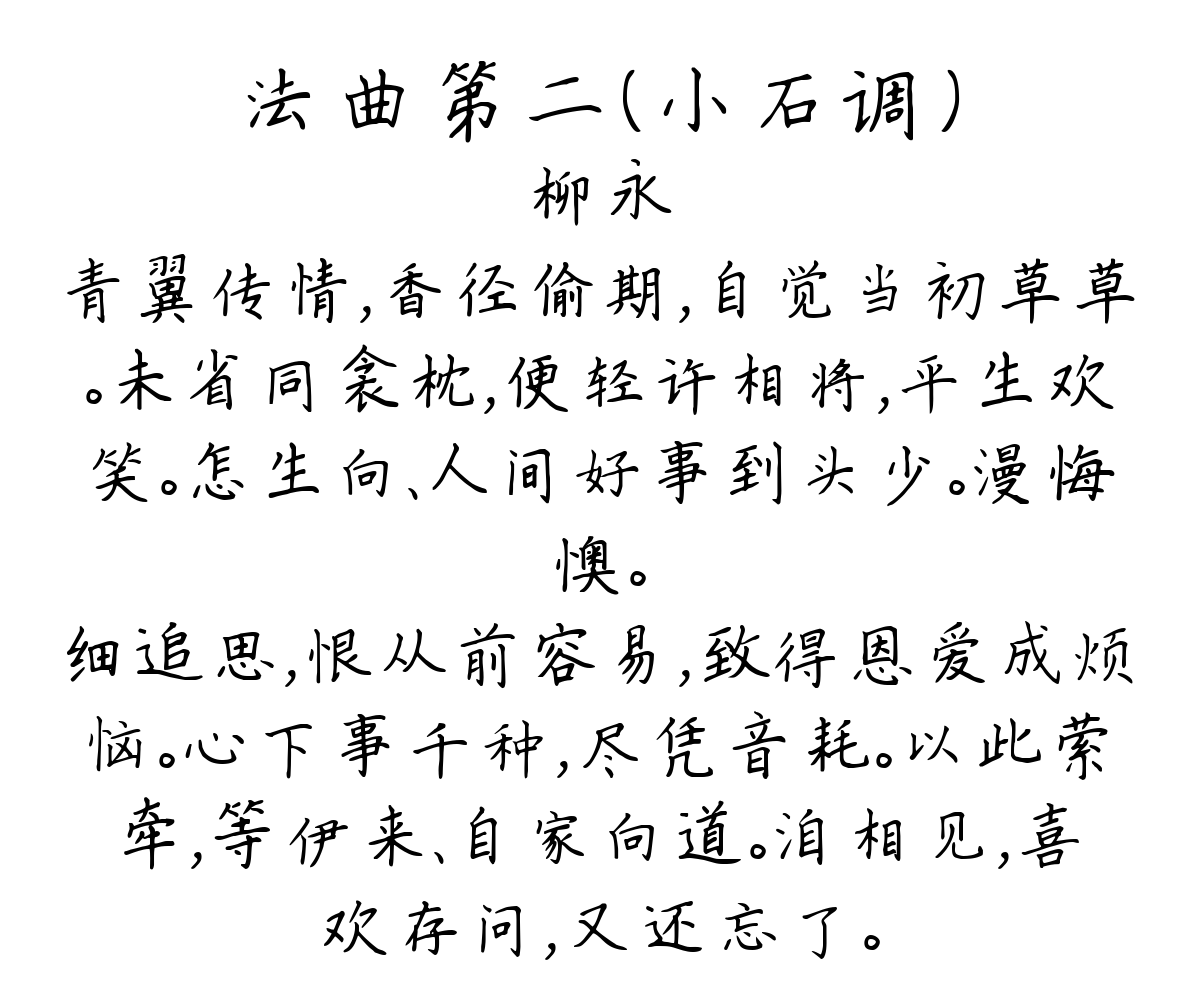 法曲第二(小石调)
柳永
青翼传情,香径偷期,自觉当初草草
。未省同衾枕,便轻许相将,平生欢
笑。怎生向、人间好事到头少。漫悔
懊。
细追思,恨从前容易,致得恩爱成烦
恼。心下事千种,尽凭音耗。以此萦
牵,等伊来、自家向道。洎相见,喜
欢存问,又还忘了。